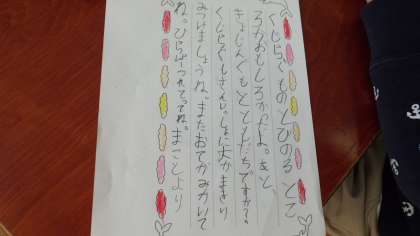 くじらぐものとびのるとこ
ろがおもしろかったよ。あと、
きょじんぐもとともだちですか？
くじらぐもさんいっしょに大かまきり
みつけましょうね。またおてがみかいて
ね。ひらばーつかってってね。まことより